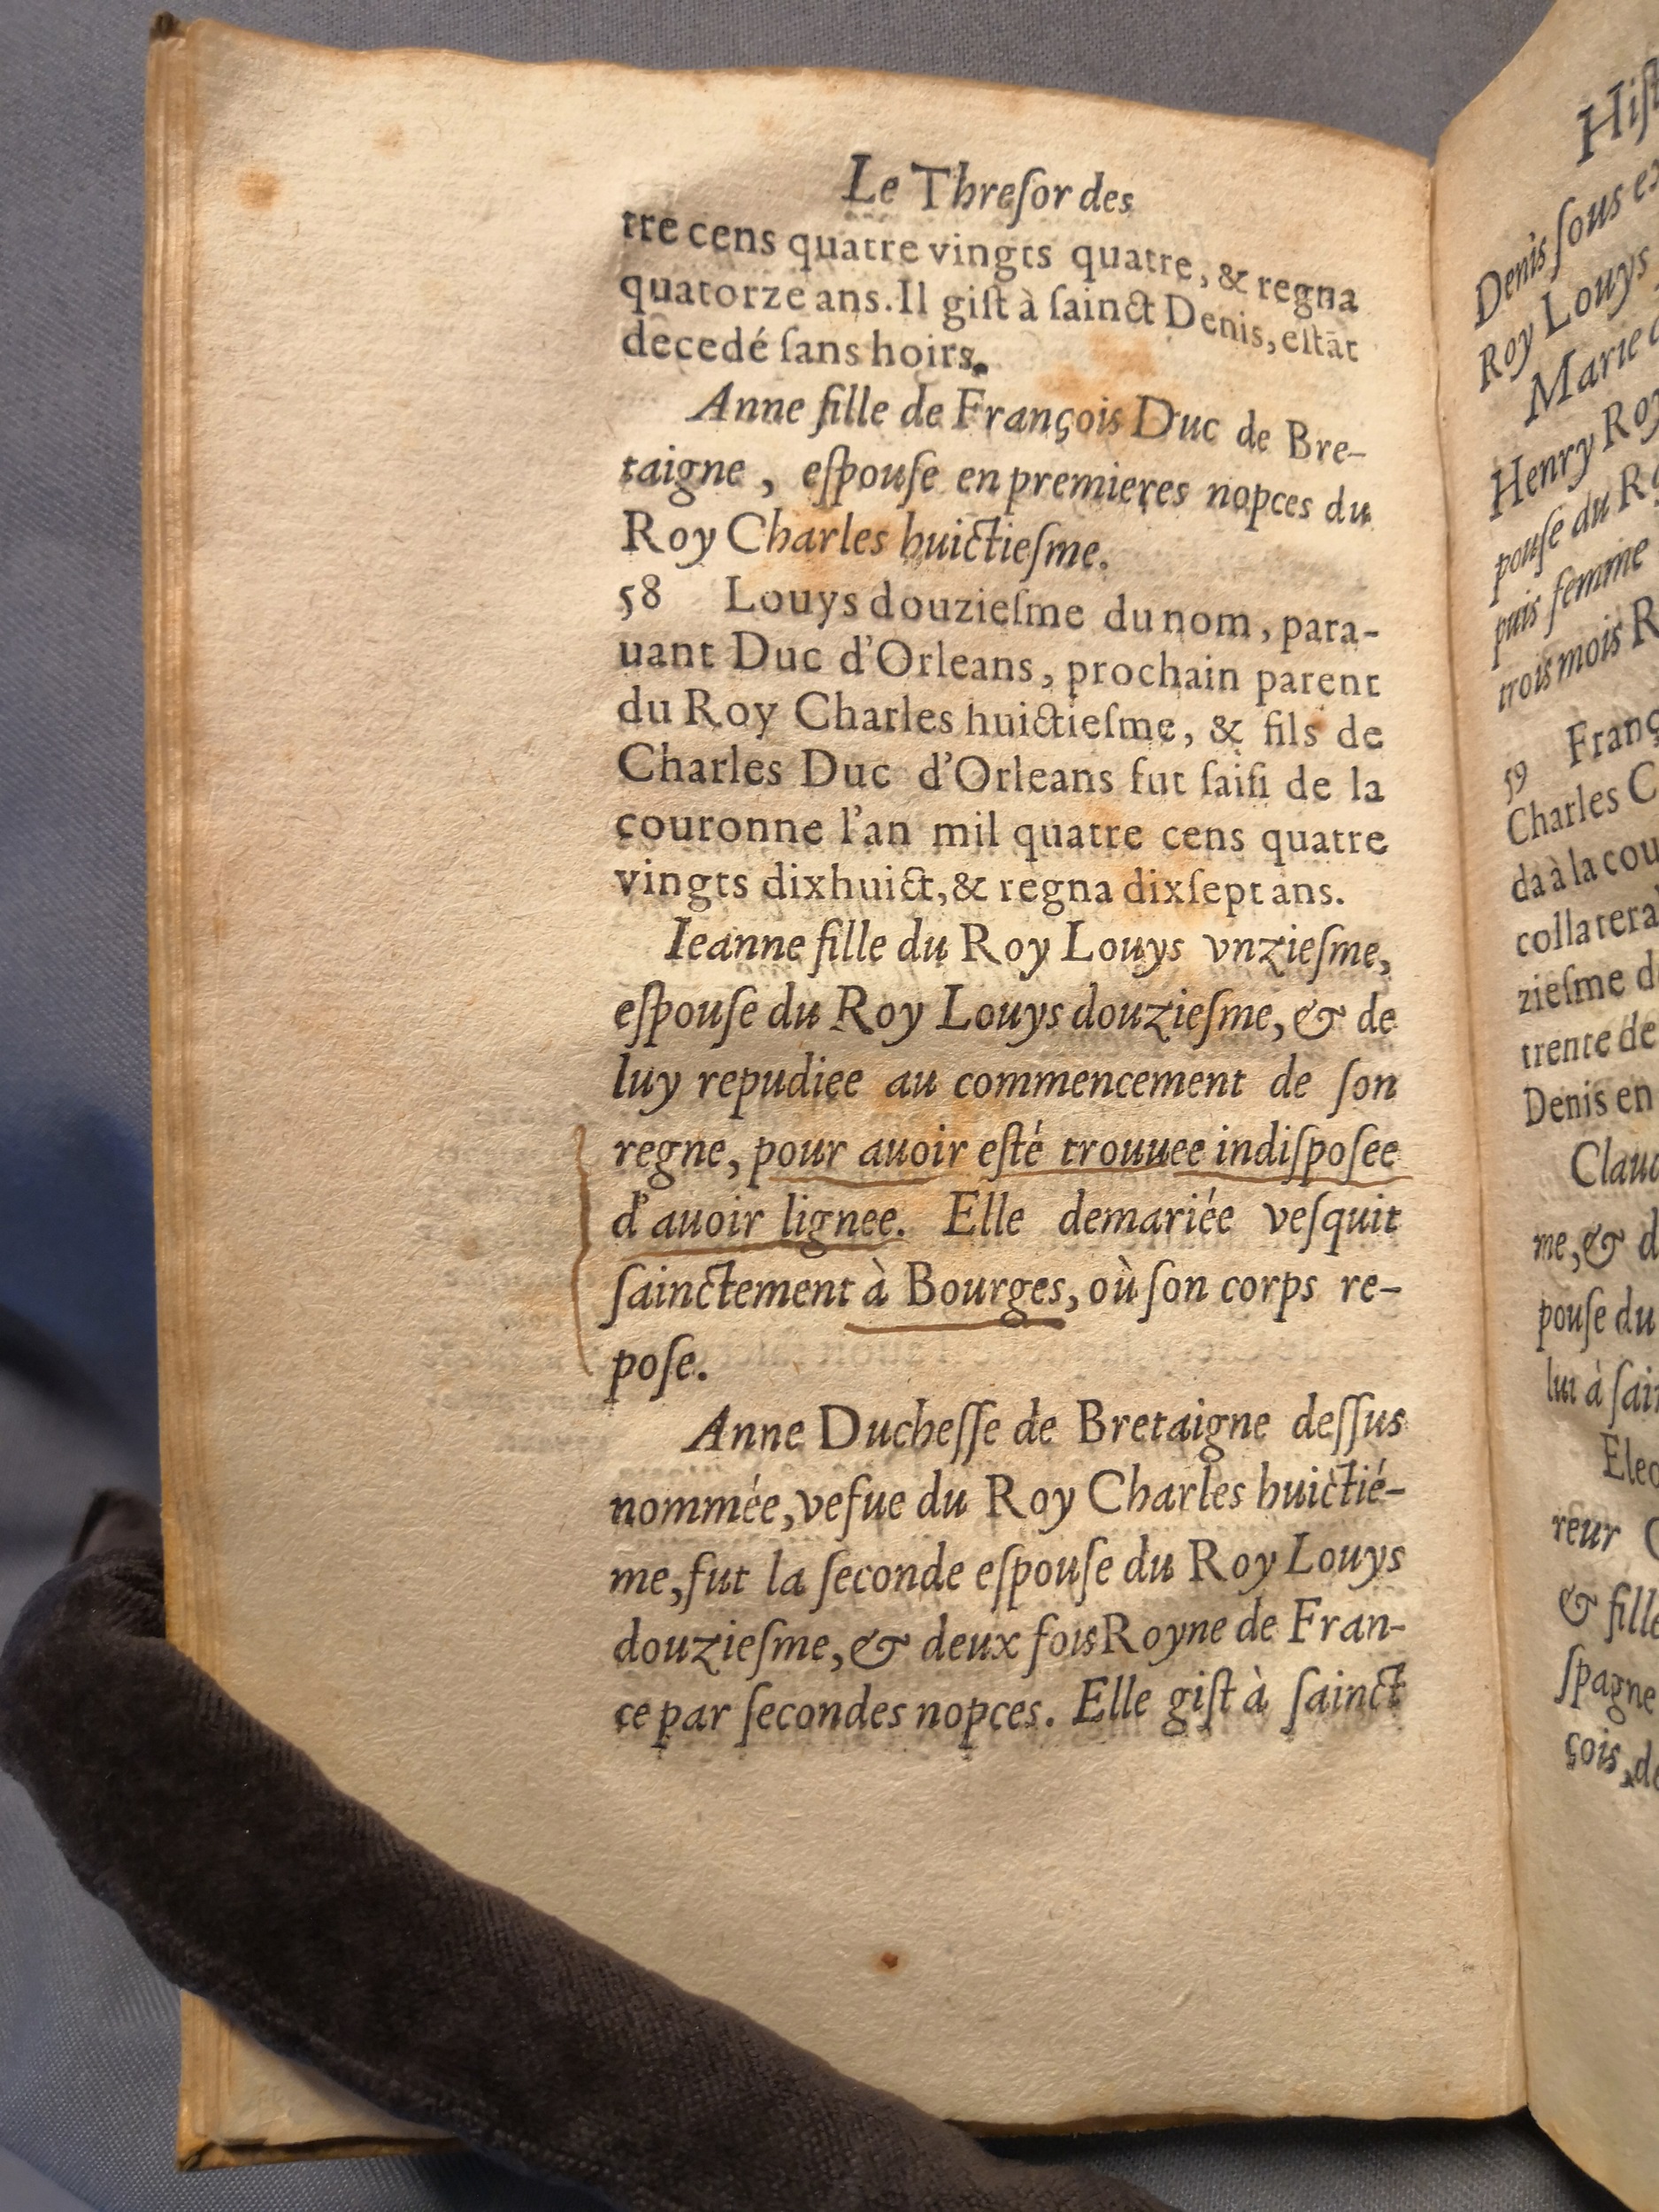 Le Threſor des
tre cens quatre vingts quatre, & regna
quatorze ans. Il giſt à ſainct Denis, eſtāt
decedé ſans hoirs.
Anne fille de François Duc de Bre-
taigne, eſpouſe en premieres nopces du
Roy Charles huictieſme.
58 Louys douzieſme du nom, para-
uant Duc d'Orleans, prochain parent
du Roy Charles huictieſme, & fils de
Charles Duc d'Orleans fut ſaiſi de la
couronne l'an mil quatre cens quatre
vingts dixhuict, & regna dixſept ans.
Ieanne fille du Roy Louys vnzieſme,
eſpouſe du Roy Louys douzieſme, & de
luy repudiee au commencement de ſon
regne, pour auoir eſté trouuee indiſpoſee
d'auoir lignee. Elle demariée veſquit
ſainctement à Bourges, où ſon corps re-
poſe.
Anne Ducheſſe de Bretaigne deſſus
nommée, vefue du Roy Charles huictié-
me, fut la ſeconde eſpouſe du Roy Louys
douzieſme, & deux fois Royne de Fran-
ce par ſecondes nopces. Elle giſt à ſainct
Denis ſous
Roy Louys
Marie
Henry Roy
pouſe du
puis femme
trois mois
59
Charles
da à la
zieſme
trente de
Denis en
me, &
pouſe du
lui à
reur
& fille
ſpagne
çois,